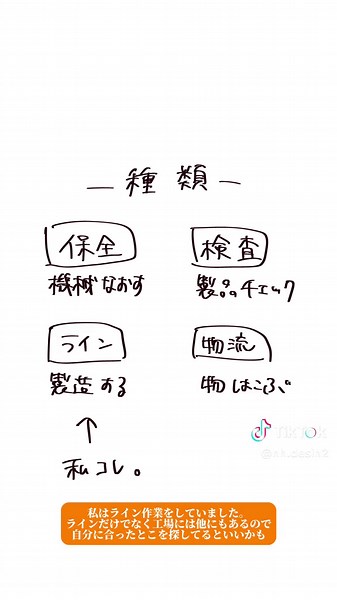 ー種類ー
保全
機械なおす
検査
製品チェック
ライン
製造する
物流
物はこぶ
↑
私コレ。
TikTok
私はライン作業をしていました。
ラインだけでなく工場には他にもあるので
自分に合ったとこを探してるといいかも